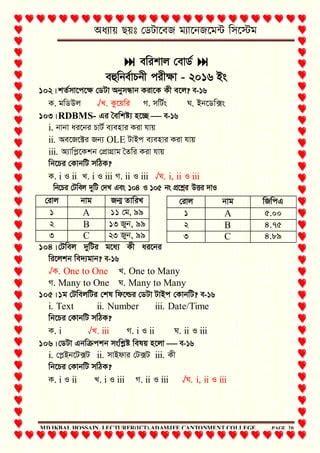 অধ্যায় ছয়ঃ ডেটাবেজ ম্যানেজমেন্ট সিস্টেম
⏭ বরিশাল বোর্ড ⏮
বহুনির্বাচনী পরীক্ষা - ২০১৬ ইং
১০২। শর্তসাপেক্ষে ডেটা অনুসন্ধান করাকে কী বলে? ব-১৬
ক. মডিউল √খ. কুয়েরি গ. সর্টিং ঘ. ইনডেক্সিং
১০৩। RDBMS- এর বৈশিষ্ট্য হচ্ছে — ব-১৬
i. নানা ধরনের চার্ট ব্যবহার করা যায়
ii. অবজেক্টের জন্য OLE টাইপ ব্যবহার করা যায়
iii. অ্যাপ্লিকেশন প্রোগ্রাম তৈরি করা যায়
নিচের কোনটি সঠিক?
ক. i ও ii খ. i ও iii গ. ii ও iii √ঘ. i, ii ও iii
নিচের টেবিল দুটি দেখ এবং ১০৪ ও ১০৫ নং প্রশ্নের উত্তর দাও
রোল নাম জন্ম তারিখ
১ A ১১ মে, ৯৯
২ B ১৩ জুন, ৯৯
৩ C ২৩ জুন, ৯৯
রোল নাম জিপিএ
১ A ৫.০০
২ B ৪.৭৫
৩ C ৪.৮৯
১০৪। টেবিল দুটির মধ্যে কী ধরনের
রিলেশন বিদ্যমান? ব-১৬
√ক. One to One খ. One to Many
গ. Many to One ঘ. Many to Many
১০৫। ১ম টেবিলটির শেষ ফিল্ডের ডেটা টাইপ কোনটি? ব-১৬
i. Text ii. Number iii. Date/Time
নিচের কোনটি সঠিক?
ক. i √খ. iii গ. i ও ii ঘ. ii ও iii
১০৬। ডেটা এনক্রিপশন সংশ্লিষ্ট বিষয় হলো — ব-১৬
i. প্লেইনটেক্সট ii. সাইফার টেক্সট iii. কী
নিচের কোনটি সঠিক?
ক. i ও ii খ. i ও iii গ. ii ও iii √ঘ. i, ii ও iii
MD IKBAL HOSSAIN, LECTURER(ICT) ADAMJEE CANTONMENT COLLEGE PAGE 26